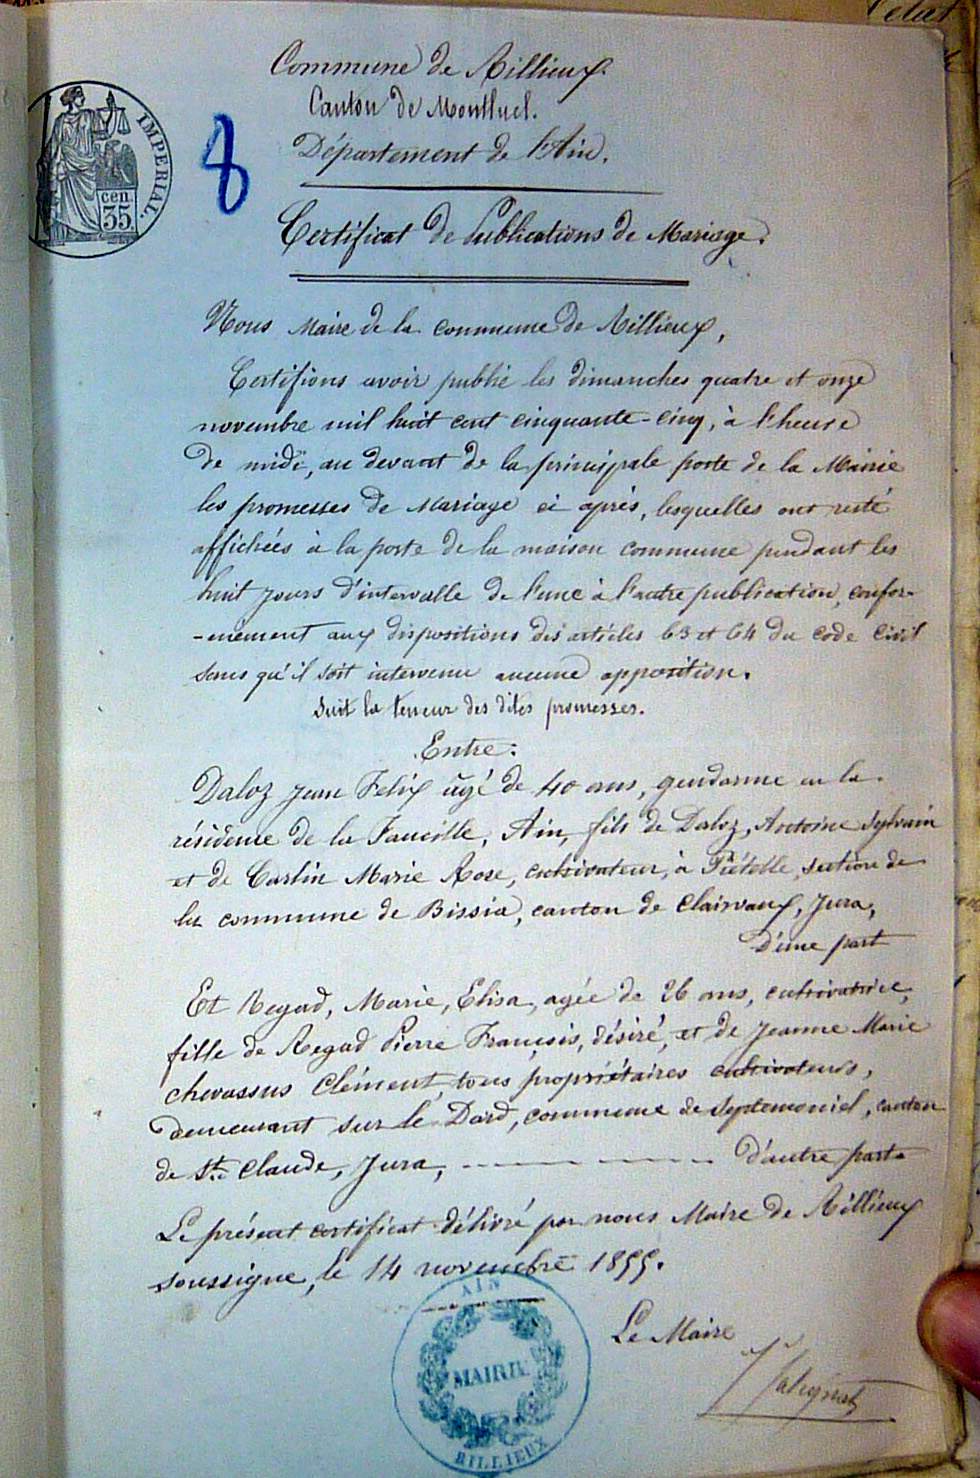 l'état
Commune de Rillieux.
Canton de Montluel.
Département de l'Ain.
IMPERIAL.
cen.
35.
8
Certificat de Publications de Mariage.
Nous Maire de la commune de Rillieux,
Certifions avoir publié les dimanches quatre et onze
novembre mil huit cent cinquante-cinq, à l'heure
de midi, au devant de la principale porte de la Mairie
les promesses de Mariage ci après, lesquelles ont resté
affichées à la porte de la maison commune pendant les
huit jours d'intervalle de l'une à l'autre publication, confor-
-mément aux dispositions des articles 63 et 64 du code Civil
sans qu'il soit intervenu aucune opposition.
Suit la teneur des dites promesses.
Entre:
Daloz Jean Felix agé de 40 ans, gendarme en la
résidence de la Faucille, Ain, fils de Daloz, Antoine Sylvain
et de Carlin Marie Rose, cultivateur, à Piételle, section de
la commune de Bissia, canton de Clairvaux, Jura,
D'une part
Et Regad, Marie, Elisa, agée de 26 ans, cultivatrice,
fille de Regad Pierre François, désiré, et de Jeanne Marie
chevassus Clément, tous propriétaires cultivateurs,
demeurant sur le Dard, commune de Septmoncel, canton
de St. Claude, Jura, - - - - - - - - - - d'autre part
Le présent certificat délivré par nous Maire de Rillieux
soussigne, le 14 novembre 1855.
Le Maire
AIN
MAIRIE
RILLIEUX